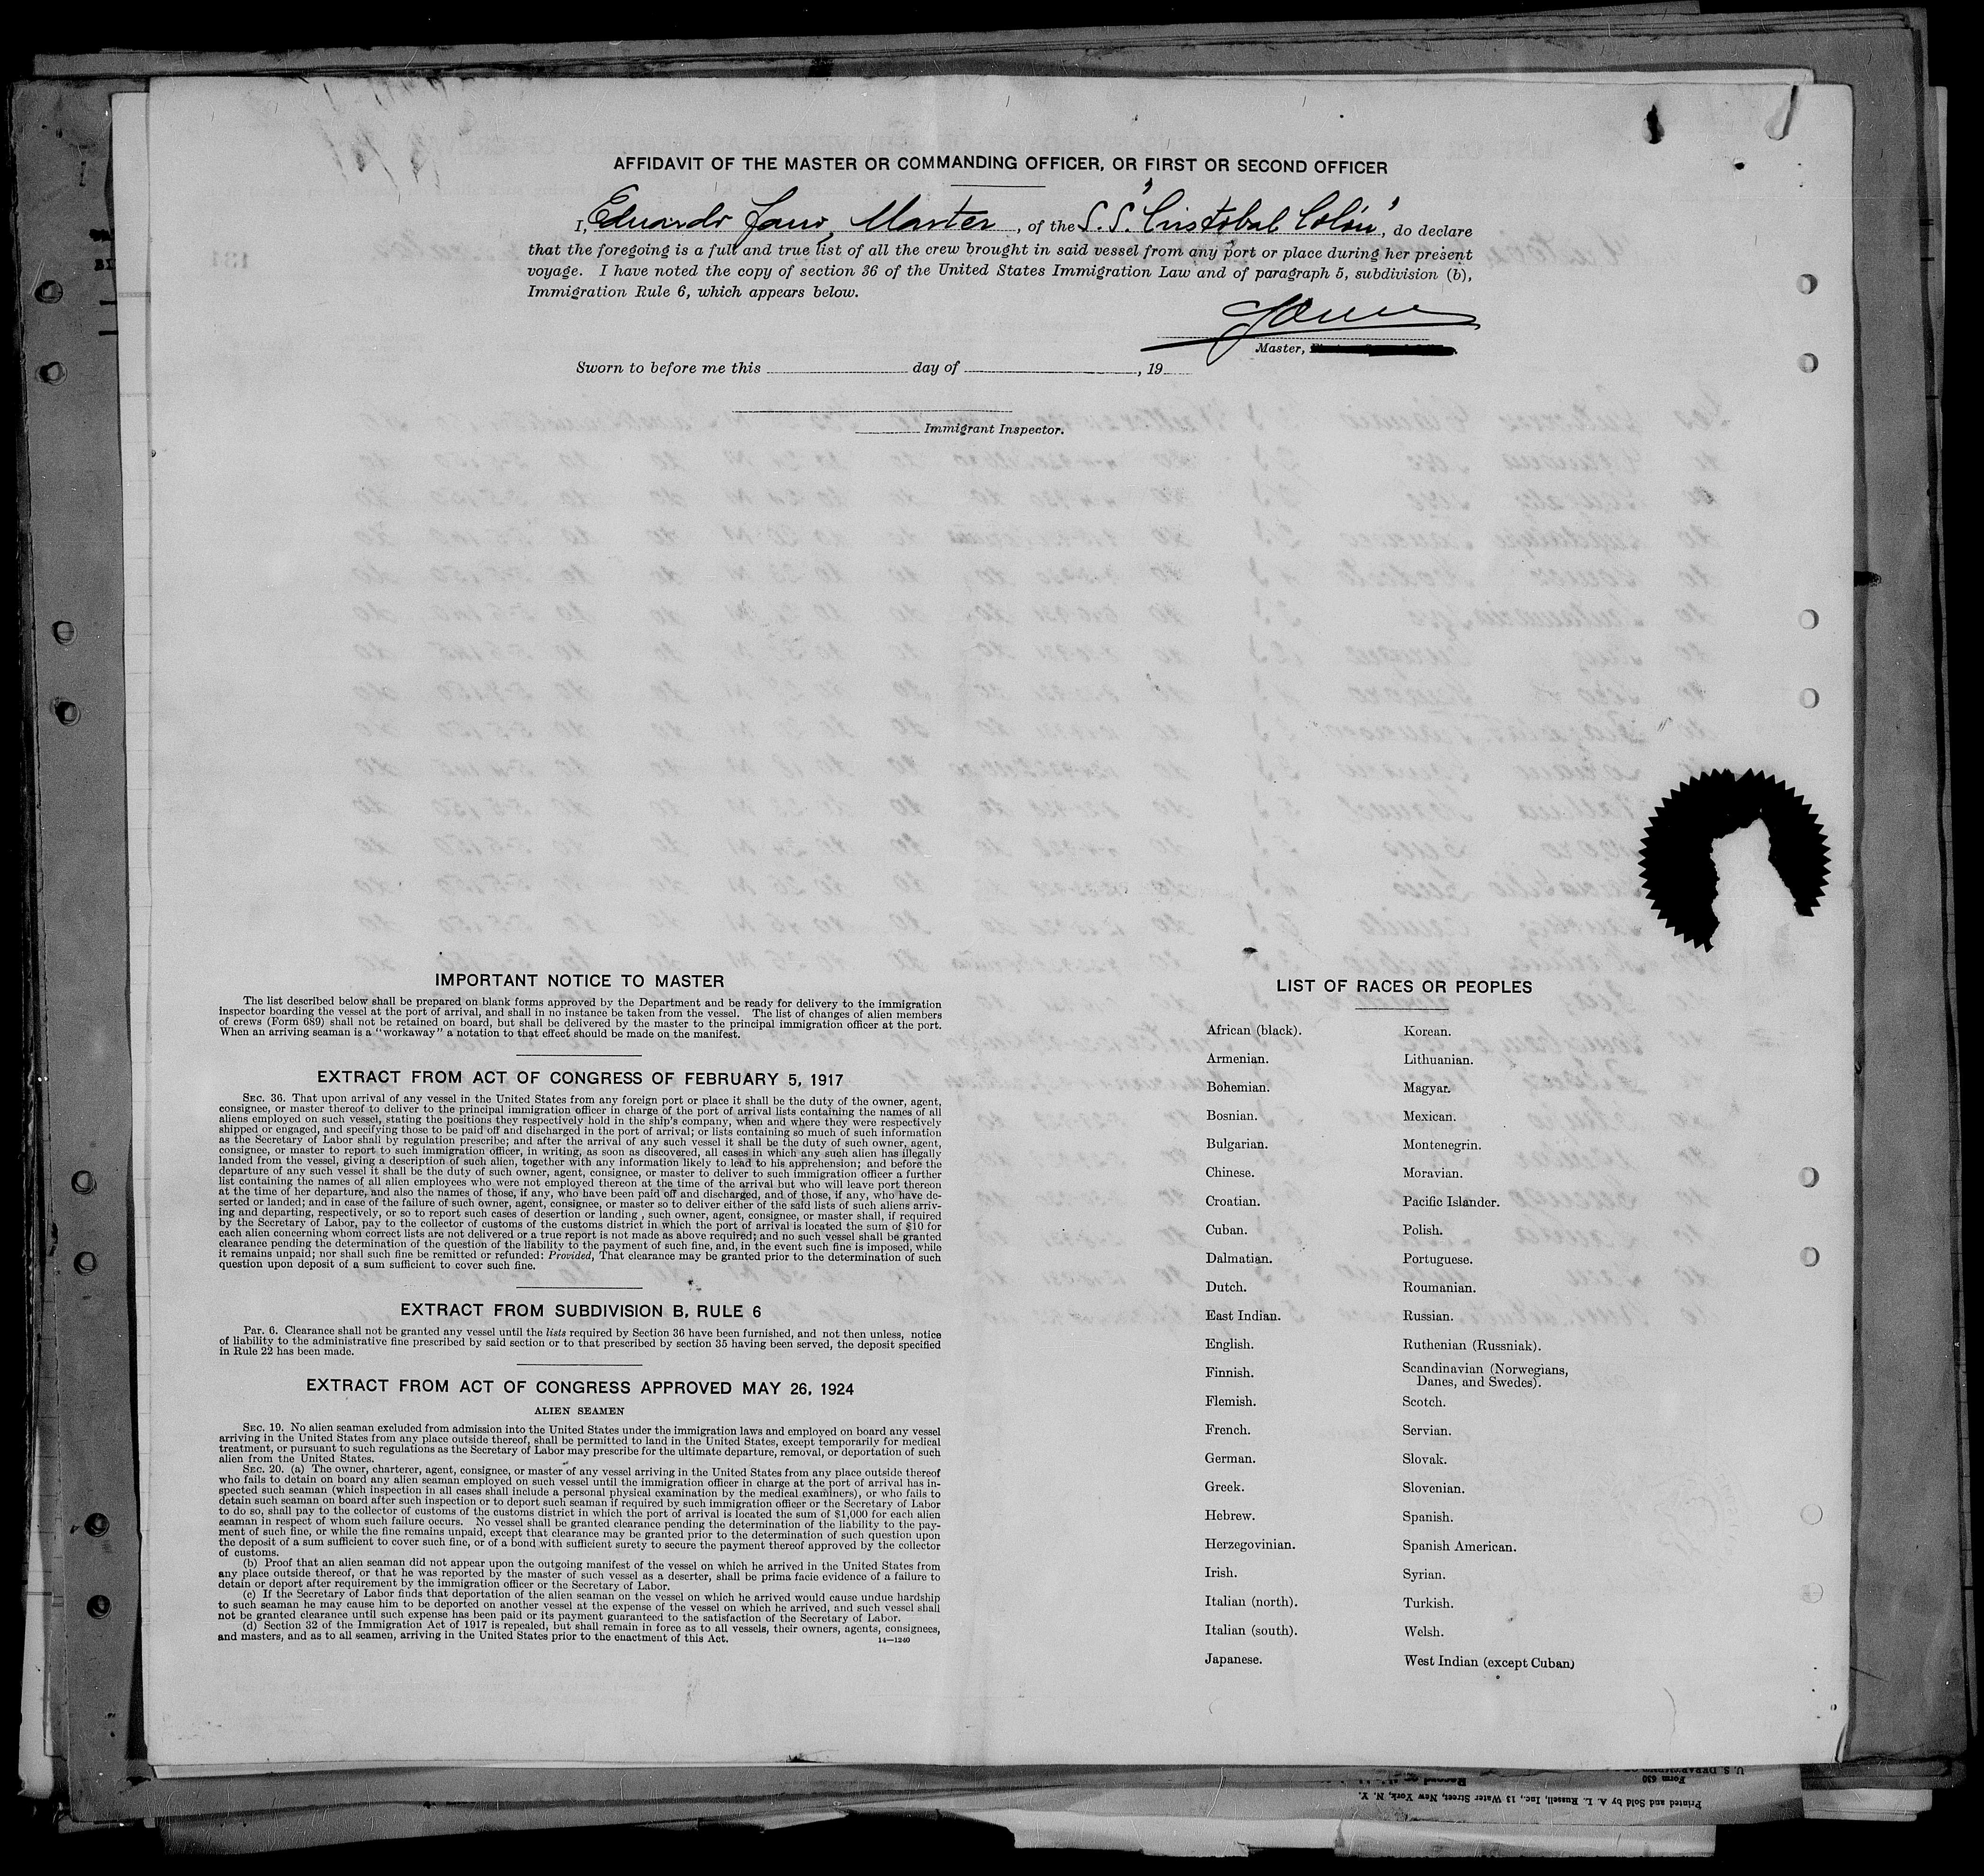 AFFIDAVIT OF THE MASTER OR COMMANDING OFFICER, OR FIRST OR SECOND OFFICER
I, Eduardo Fano, Master, of the S.S. "Cristobal Colón", do declare
that the foregoing is a full and true list of all the crew brought in said vessel from any port or place during her present
voyage. I have noted the copy of section 36 of the United States Immigration Law and of paragraph 5, subdivision (b),
Immigration Rule 6, which appears below.
Master,
Sworn to before me this day of , 19
Immigrant Inspector.
IMPORTANT NOTICE TO MASTER
The list described below shall be prepared on blank forms approved by the Department and be ready for delivery to the immigration
inspector boarding the vessel at the port of arrival, and shall in no instance be taken from the vessel. The list of changes of alien members
of crews (Form 689) shall not be retained on board, but shall be delivered by the master to the principal immigration officer at the port.
When an arriving seaman is a "workaway" a notation to that effect should be made on the manifest.
EXTRACT FROM ACT OF CONGRESS OF FEBRUARY 5, 1917
SEC. 36. That upon arrival of any vessel in the United States from any foreign port or place it shall be the duty of the owner, agent,
consignee, or master thereof to deliver to the principal immigration officer in charge of the port of arrival lists containing the names of all
aliens employed on such vessel, stating the positions they respectively hold in the ship's company, when and where they were respectively
shipped or engaged, and specifying those to be paid off and discharged in the port of arrival; or lists containing so much of such information
as the Secretary of Labor shall by regulation prescribe; and after the arrival of any such vessel it shall be the duty of such owner, agent,
consignee, or master to report to such immigration officer, in writing, as soon as discovered, all cases in which any such alien has illegally
landed from the vessel, giving a description of such alien, together with any information likely to lead to his apprehension; and before the
departure of any such vessel it shall be the duty of such owner, agent, consignee, or master to deliver to such immigration officer a further
list containing the names of all alien employees who were not employed thereon at the time of the arrival but who will leave port thereon
at the time of her departure, and also the names of those, if any, who have been paid off and discharged, and of those, if any, who have de-
serted or landed; and in case of the failure of such owner, agent, consignee, or master so to deliver either of the said lists of such aliens arriv-
ing and departing, respectively, or so to report such cases of desertion or landing , such owner, agent, consignee, or master shall, if required
by the Secretary of Labor, pay to the collector of customs of the customs district in which the port of arrival is located the sum of $10 for
each alien concerning whom correct lists are not delivered or a true report is not made as above required; and no such vessel shall be granted
clearance pending the determination of the question of the liability to the payment of such fine, and, in the event such fine is imposed, while
it remains unpaid; nor shall such fine be remitted or refunded: Provided, That clearance may be granted prior to the determination of such
question upon deposit of a sum sufficient to cover such fine.
EXTRACT FROM SUBDIVISION B, RULE 6
Par. 6. Clearance shall not be granted any vessel until the lists required by Section 36 have been furnished, and not then unless, notice
of liability to the administrative fine prescribed by said section or to that prescribed by section 35 having been served, the deposit specified
in Rule 22 has been made.
EXTRACT FROM ACT OF CONGRESS APPROVED MAY 26, 1924
ALIEN SEAMEN
SEC. 19. No alien seaman excluded from admission into the United States under the immigration laws and employed on board any vessel
arriving in the United States from any place outside thereof, shall be permitted to land in the United States, except temporarily for medical
treatment, or pursuant to such regulations as the Secretary of Labor may prescribe for the ultimate departure, removal, or deportation of such
alien from the United States.
SEC. 20. (a) The owner, charterer, agent, consignee, or master of any vessel arriving in the United States from any place outside thereof
who fails to detain on board any alien seaman employed on such vessel until the immigration officer in charge at the port of arrival has in-
spected such seaman (which inspection in all cases shall include a personal physical examination by the medical examiners), or who fails to
detain such seaman on board after such inspection or to deport such seaman if required by such immigration officer or the Secretary of Labor
to do so, shall pay to the collector of customs of the customs district in which the port of arrival is located the sum of $1,000 for each alien
seaman in respect of whom such failure occurs. No vessel shall be granted clearance pending the determination of the liability to the pay-
ment of such fine, or while the fine remains unpaid, except that clearance may be granted prior to the determination of such question upon
the deposit of a sum sufficient to cover such fine, or of a bond with sufficient surety to secure the payment thereof approved by the collector
of customs.
(b) Proof that an alien seaman did not appear upon the outgoing manifest of the vessel on which he arrived in the United States from
any place outside thereof, or that he was reported by the master of such vessel as a deserter, shall be prima facie evidence of a failure to
detain or deport after requirement by the immigration officer or the Secretary of Labor.
(c) If the Secretary of Labor finds that deportation of the alien seaman on the vessel on which he arrived would cause undue hardship
to such seaman he may cause him to be deported on another vessel at the expense of the vessel on which he arrived, and such vessel shall
not be granted clearance until such expense has been paid or its payment guaranteed to the satisfaction of the Secretary of Labor.
(d) Section 32 of the Immigration Act of 1917 is repealed, but shall remain in force as to all vessels, their owners, agents, consignees,
and masters, and as to all seamen, arriving in the United States prior to the enactment of this Act.
14—1240
LIST OF RACES OR PEOPLES
African (black).
Armenian.
Bohemian.
Bosnian.
Bulgarian.
Chinese.
Croatian.
Cuban.
Dalmatian.
Dutch.
East Indian.
English.
Finnish.
Flemish.
French.
German.
Greek.
Hebrew.
Herzegovinian.
Irish.
Italian (north).
Italian (south).
Japanese.
Korean.
Lithuanian.
Magyar.
Mexican.
Montenegrin.
Moravian.
Pacific Islander.
Polish.
Portuguese.
Roumanian.
Russian.
Ruthenian (Russniak).
Scandinavian (Norwegians,
Danes, and Swedes).
Scotch.
Servian.
Slovak.
Slovenian.
Spanish.
Spanish American.
Syrian.
Turkish.
Welsh.
West Indian (except Cuban)
Printed and Sold by A. L. Russell, Inc., 13 Water Street, New York, N. Y.
Form 630